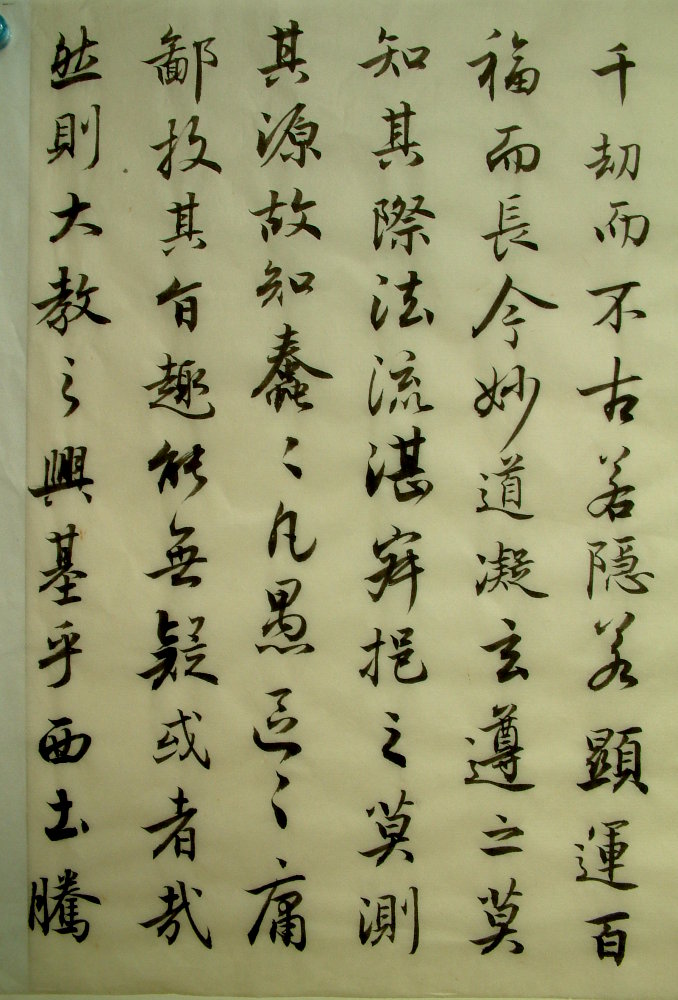 千劫而不古若隐若顯運百
福而長今妙道凝玄遵之莫
知其際法流湛寂挹之莫測
其源故知蠢〻凡愚區〻庸
鄙投其旨趣能無疑或者哉
然則大教之興基乎西土騰